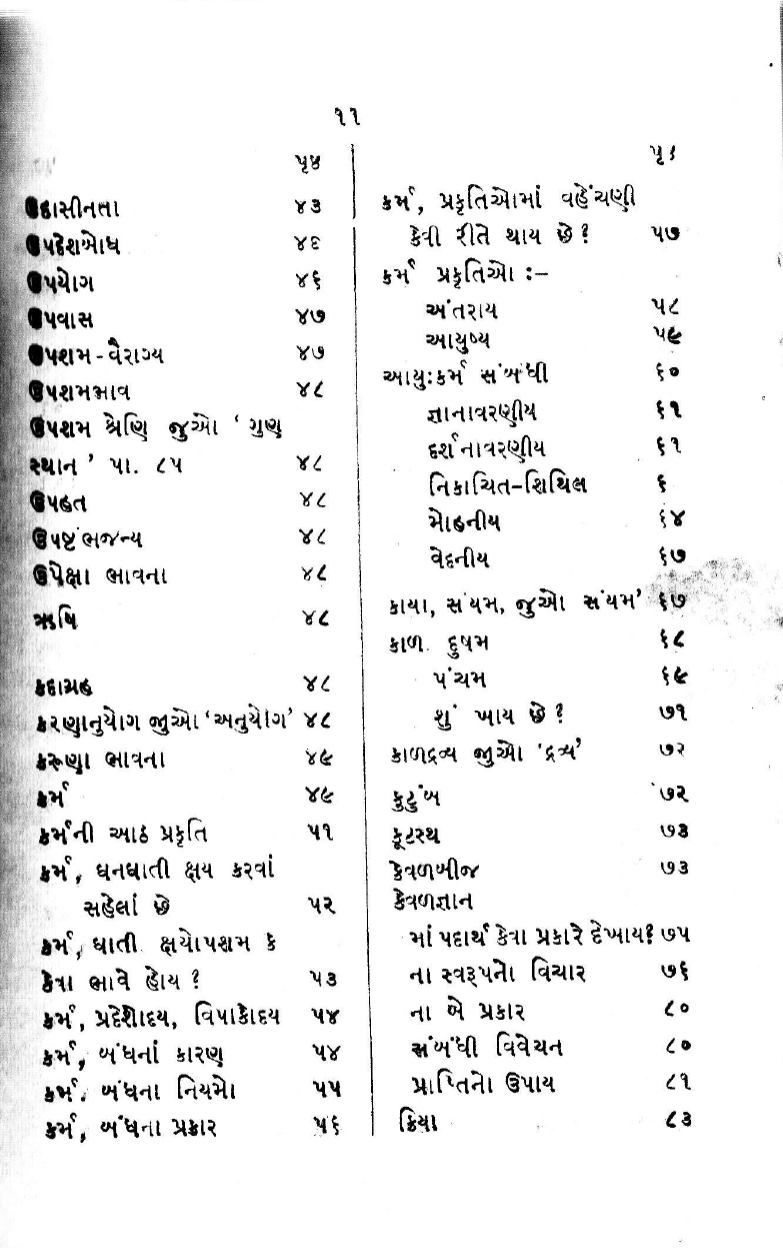 ૧૧
પૃષ્ઠ
ઉદાસીનતા ૪૩
ઉપદેશબોધ ૪૬
ઉપયોગ ૪૬
ઉપવાસ ૪૭
ઉપશમ-વૈરાગ્ય ૪૭
ઉપશમભાવ ૪૮
ઉપશમ શ્રેણિ જુઓ ‘ ગુણ
સ્થાન ’ પા. ૮૫ ૪૮
ઉપહત ૪૮
ઉપષ્ટંભજન્ય ૪૮
ઉપેક્ષા ભાવના ૪૮
ઋષિ ૪૮
કદાગ્રહ ૪૮
કરણાનુયોગ જુઓ ‘અનુયોગ’ ૪૮
કરુણા ભાવના ૪૯
કર્મ ૪૯
કર્મની આઠ પ્રકૃતિ ૫૧
કર્મ, ઘનઘાતી ક્ષય કરવાં
સહેલાં છે ૫૨
કર્મ, ઘાતી ક્ષયોપશમ કે
કેવા ભાવે હોય ? ૫૩
કર્મ, પ્રદેશોદય, વિપાકોદય ૫૪
કર્મ, બંધનાં કારણ ૫૪
કર્મ. બંધના નિયમો ૫૫
કર્મ, બંધના પ્રકાર ૫૬
પૃ
કર્મ, પ્રકૃતિઓમાં વહેંચણી
કેવી રીતે થાય છે ? ૫૭
કર્મ પ્રકૃતિઓ :–
અંતરાય ૫૮
આયુષ્ય ૫૯
આયુઃકર્મ સંબંધી ૬૦
જ્ઞાનાવરણીય ૬૧
દર્શનાવરણીય ૬૧
નિકાચિત–શિથિલ ૬
મોહનીય ૬૪
વેદનીય ૬૭
કાયા, સંયમ, જુઓ સંયમ’ ૬૭
કાળ. દુષમ ૬૮
પંચમ ૬૯
શું ખાય છે ? ૭૧
કાળદ્રવ્ય જુઓ ‘દ્રવ્ય’ ૭૨
કુટુંબ ૭૨
કૂટસ્થ ૭૩
કેવળબીજ ૭૩
કેવળજ્ઞાન
માં પદાર્થ કેવા પ્રકારે દેખાય? ૭૫
ના સ્વરૂપનો વિચાર ૭૬
ના બે પ્રકાર ૮૦
સંબંધી વિવેચન ૮૦
પ્રાપ્તિનો ઉપાય ૮૧
ક્રિયા ૮૩